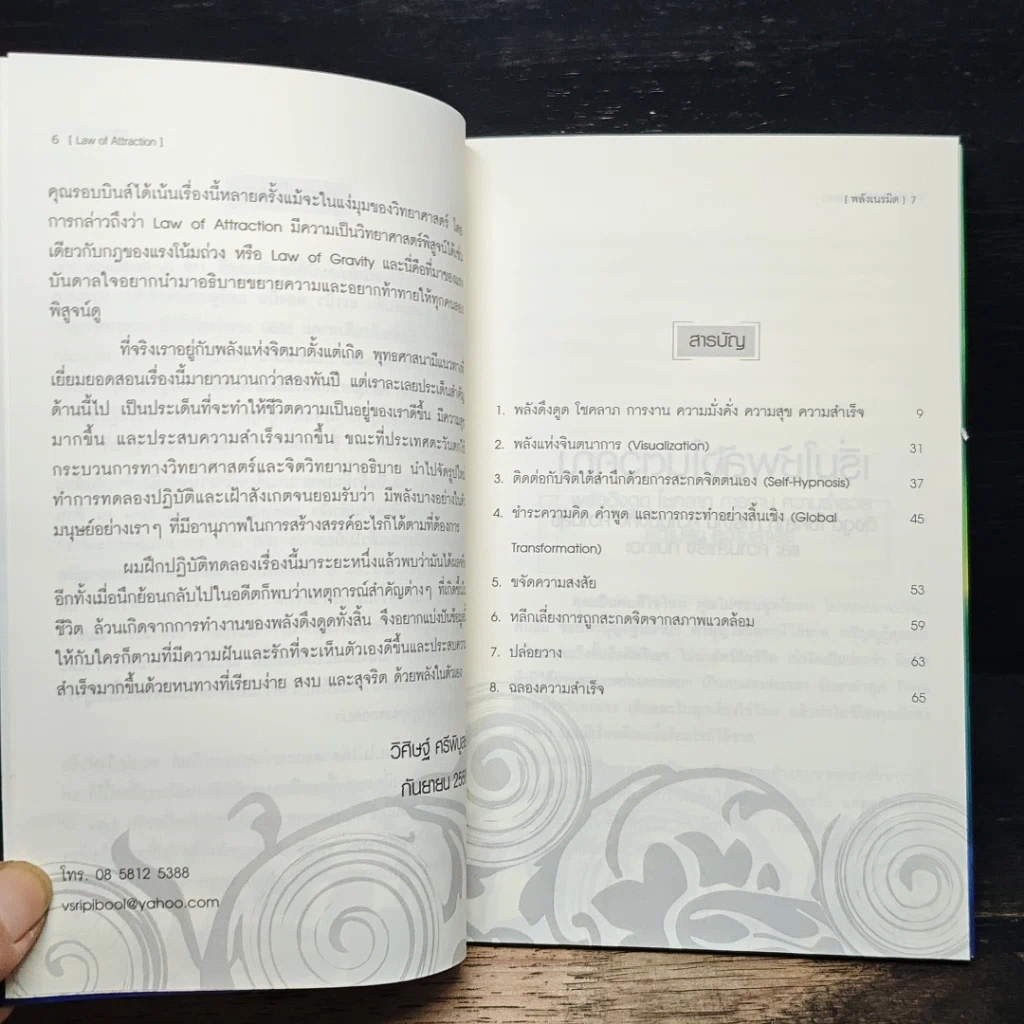 6 [ Law of Attraction ]
คุณรอบบินส์ได้เน้นเรื่องนี้หลายครั้งแม้จะในแง่มุมของวิทยาศาสตร์ โดย
การกล่าวถึงว่า Law of Attraction มีความเป็นวิทยาศาสตร์พิสูจน์ได้เช่น
เดียวกับกฎของแรงโน้มถ่วง หรือ Law of Gravity และนี่คือที่มาของแรง
บันดาลใจอยากนำมาอธิบายขยายความและอยากท้าทายให้ทุกคนลอง
พิสูจน์ดู
ที่จริงเราอยู่กับพลังแห่งจิตมาตั้งแต่เกิด พุทธศาสนามีแนวทางที่
เยี่ยมยอดสอนเรื่องนี้มายาวนานกว่าสองพันปี แต่เราละเลยประเด็นสำคัญ
ด้านนี้ไป เป็นประเด็นที่จะทำให้ชีวิตความเป็นอยู่ของเราดีขึ้น มีความสุข
มากขึ้น และประสบความสำเร็จมากขึ้น ขณะที่ประเทศตะวันตกใช้
กระบวนการทางวิทยาศาสตร์และจิตวิทยามาอธิบาย นำไปจัดรูปใหม่
ทำการทดลองปฏิบัติและเฝ้าสังเกตจนยอมรับว่า มีพลังบางอย่างในตัว
มนุษย์อย่างเราๆ ที่มีอานุภาพในการสร้างสรรค์อะไรก็ได้ตามที่ต้องการ
ผมฝึกปฏิบัติทดลองเรื่องนี้มาระยะหนึ่งแล้วพบว่ามันได้ผลจริง
อีกทั้งเมื่อนึกย้อนกลับไปในอดีตก็พบว่าเหตุการณ์สำคัญต่างๆ ที่เกิดขึ้นใน
ชีวิต ล้วนเกิดจากการทำงานของพลังดึงดูดทั้งสิ้น จึงอยากแบ่งปันข้อมูลนี้
ให้กับใครก็ตามที่มีความฝันและรักที่จะเห็นตัวเองดีขึ้นและประสบความ
สำเร็จมากขึ้นด้วยหนทางที่เรียบง่าย สงบ และสุจริต ด้วยพลังในตัวเอง
วิศิษฐ์ ศรีพิบูล
กันยายน
โทร. 08 5812 5388
vsripibool@yahoo.com
[ พลังเนรมิต ] 7
สารบัญ
1. พลังดึงดูด โชคลาภ การงาน ความมั่งคั่ง ความสุข ความสำเร็จ 9
2. พลังแห่งจินตนาการ (Visualization) 31
3. ติดต่อกับจิตใต้สำนึกด้วยการสะกดจิตตนเอง (Self-Hypnosis) 37
4. ชำระความคิด คำพูด และการกระทำอย่างสิ้นเชิง (Global 45
Transformation)
5. ขจัดความสงสัย 53
6. หลีกเลี่ยงการถูกสะกดจิตจากสภาพแวดล้อม 59
7. ปล่อยวาง 63
8. ฉลองความสำเร็จ 65